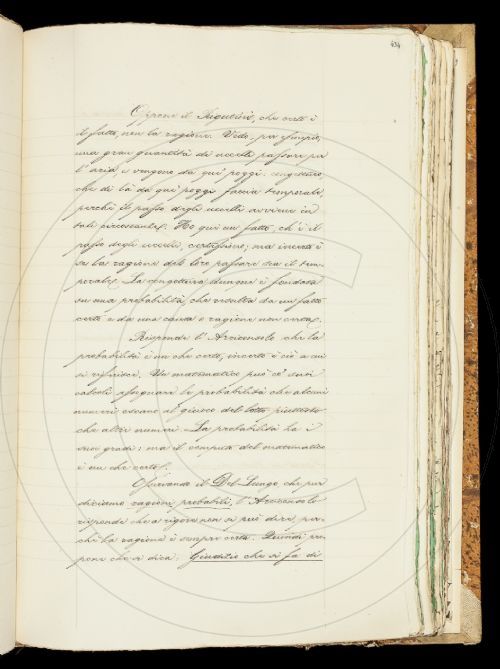 434
Oppone il Rigutini, che certo è
il fatto, non la ragione. Vedo, per esempio,
una gran quantità di uccelli passare per
l'aria e vengono da qui poggi: congetturo
che di là da qui poggi faccia temporale,
perchè il passo degli uccelli avviene in
tali circostanze. Ho qui un fatto, ch'è il
passo degli uccelli, certissimo; ma incerto è
se la ragione del loro passare sia il tem-
porale. La congettura dunque è fondata
su una probabilità, che risulta da un fatto
certo e da una causa o ragione non certa.
Risponde l'Arciconsolo che la
probabilità è un che certo, incerto è ciò a cui
si riferisce. Un matematico può co' suoi
calcoli assegnare le probabilità che alcuni
numeri escano al giuoco del lotto piuttosto
che altri numeri. La probabilità ha i
suoi gradi; ma il computo del matematico
è un che certo.
Osservando il Del-Lungo che pur
diciamo ragioni probabili, l'Arciconsolo
risponde che a rigore non si può dire, per-
chè la ragione è sempre certa. Quindi pro-
pone che si dica: Giudizio che si fa di